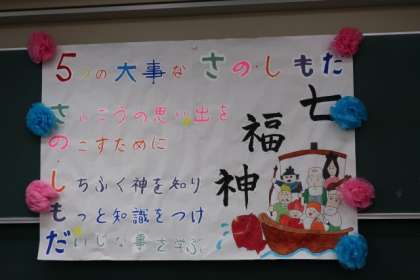 5つの大事なさの・しもだ
さいこうの思い出を
のこすために
・
しちふく神を知り
もっと知識をつけ
だいじな事を学ぶ
七福神